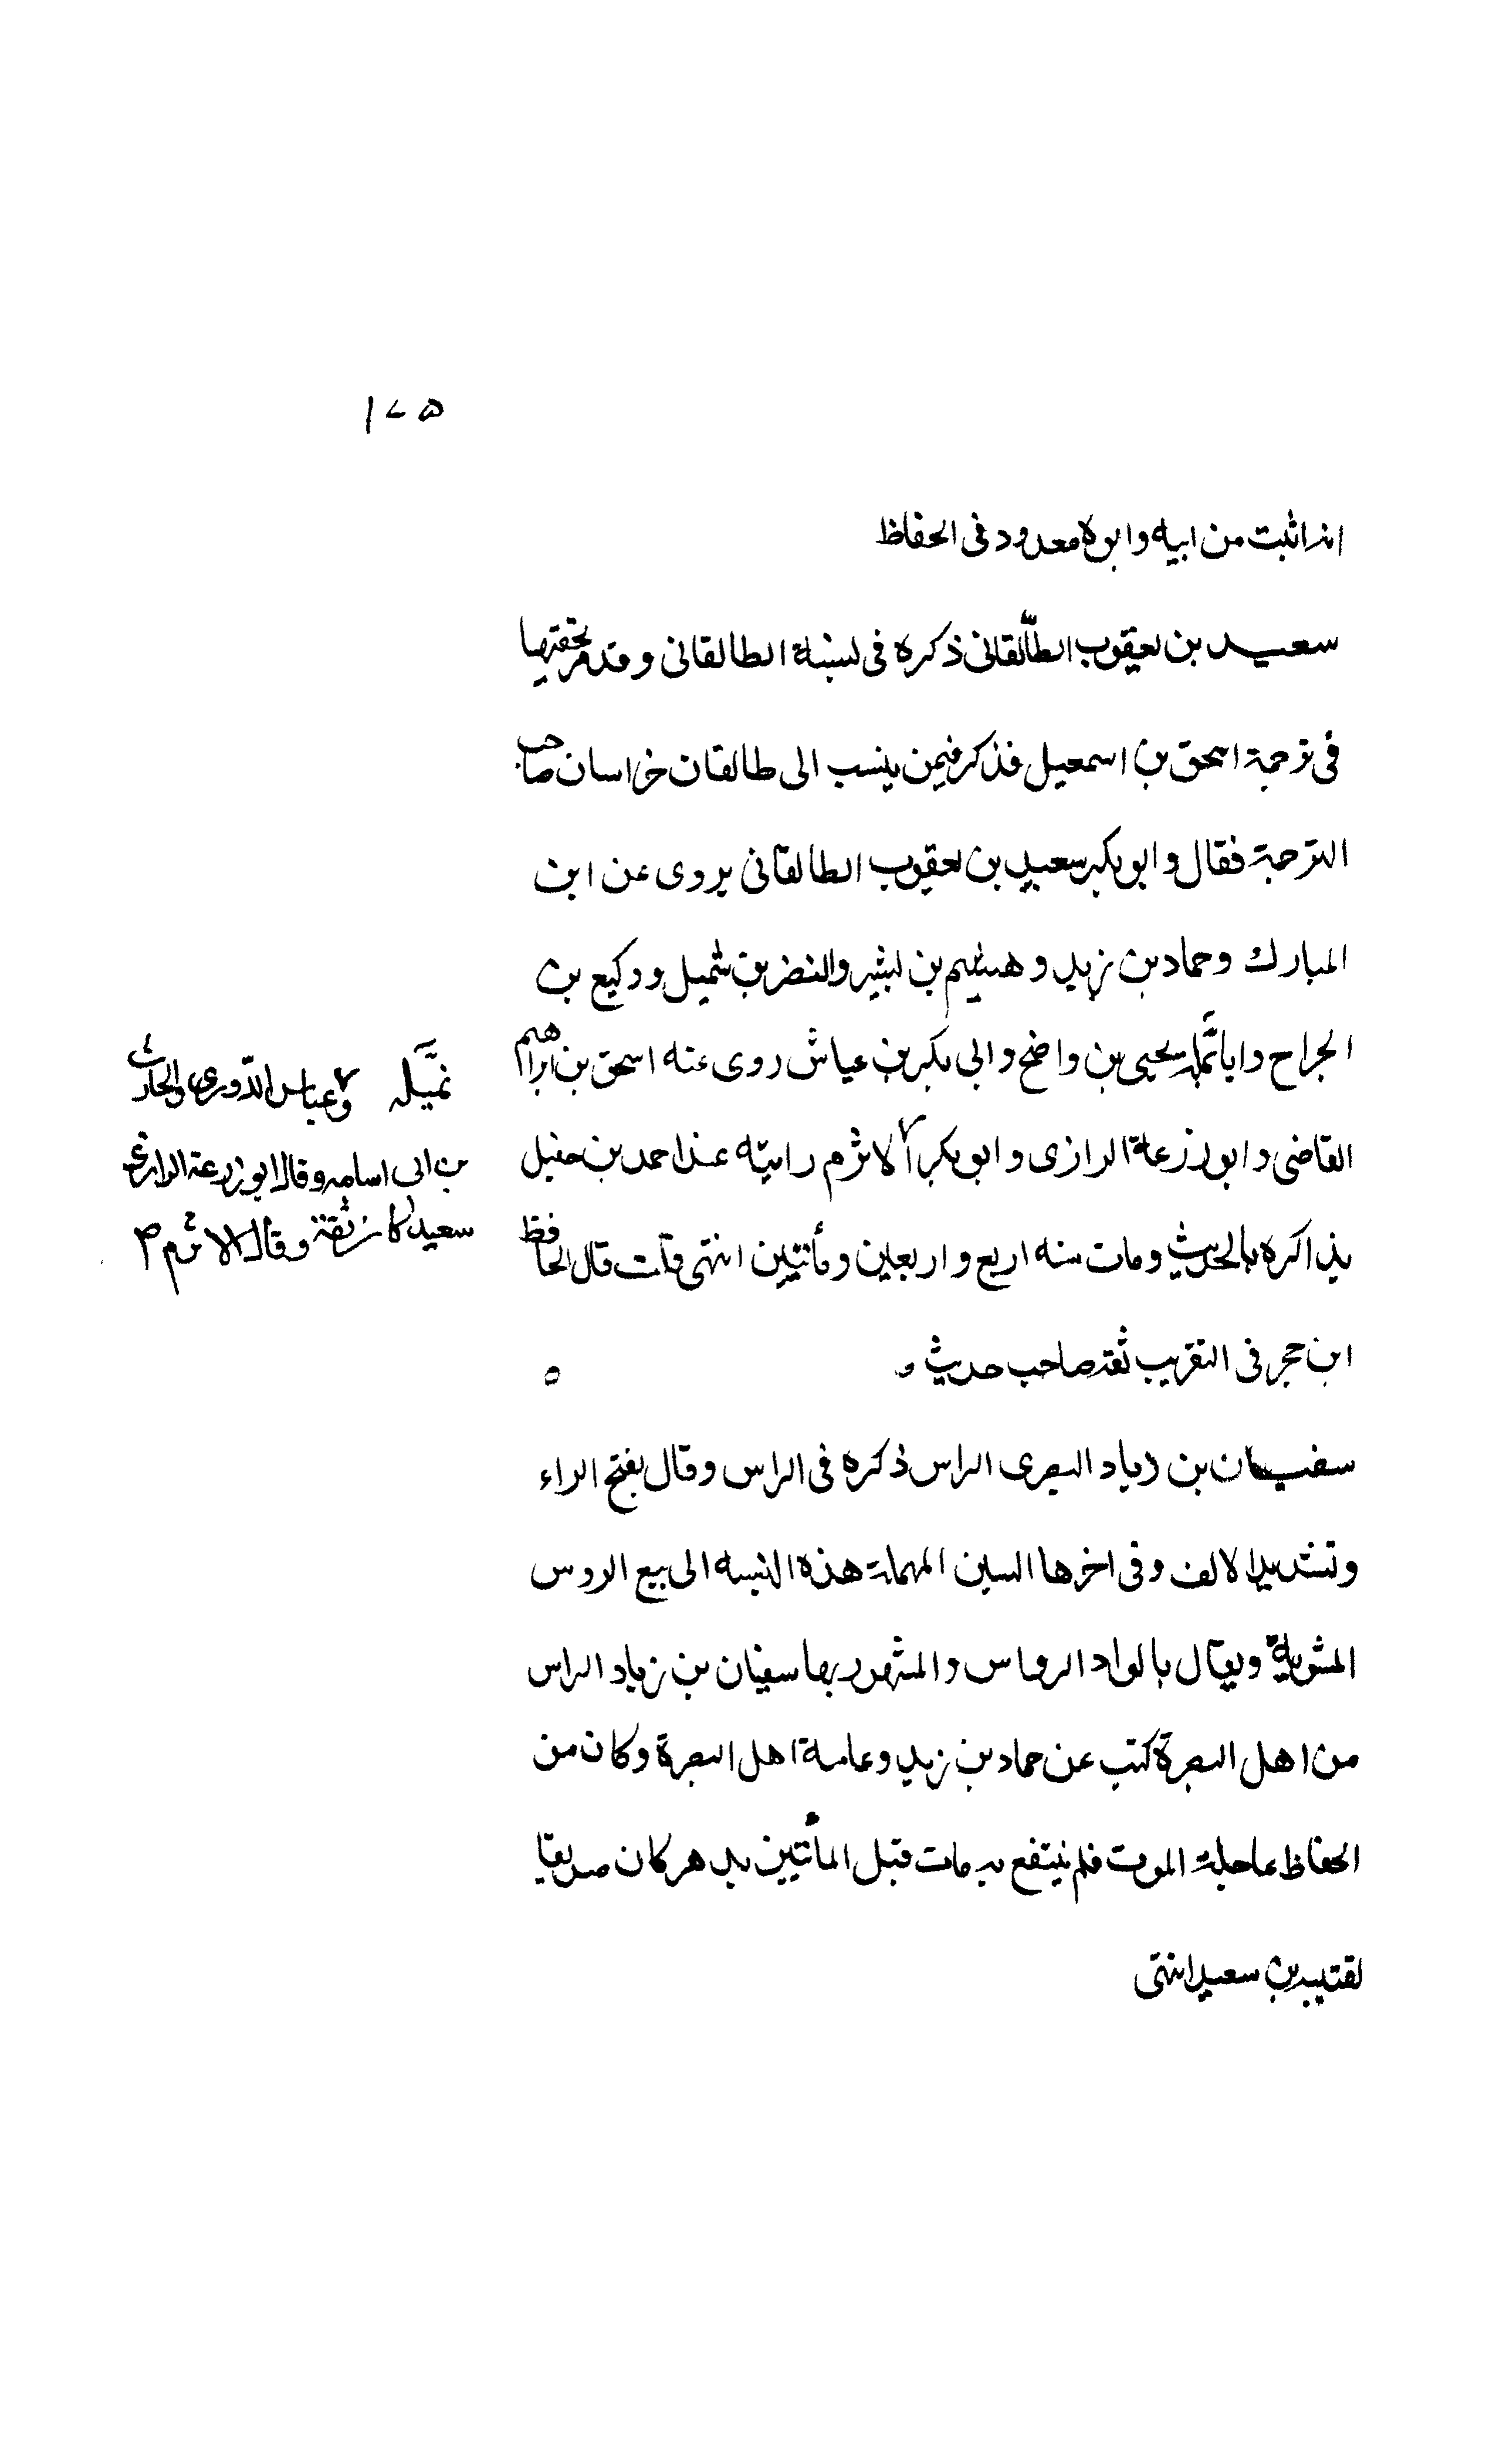 ١٧۵
انه اثبت من ابيه وابوه معدود فى الحفاظ
سعيد بن يعقوب الطالقانى ذكره فى نسبة الطالقانى وقد مر تحقيقها
فى ترجمة اسحق بن اسمعيل فذكر فيمن ينسب الى طالقان خراسان صاحب
الترجمة فقال وابو بكر سعيد بن يعقوب الطالقانى يروى عن ابن
المبارك وحماد بن زيد وهشيم بن بشير والنضر بن شميل ووكيع بن
الجراح وابا تميلة يحيى بن واضح وابى بكر بن عياش روى عنه اسحق بن ابراهيم
القاضى وابو زرعة الرازى وابو بكر الاثرم رايته عند احمد بن حنبل
يذاكره بالحديث ومات سنه اربع واربعين ومأتين انتهى قلت قال الحافظ
ابن حجر فى التقريب ثقة صاحب حديث ٥
سفيان بن زياد البصرى الراس ذكره فى الراس وقال بفتح الراء
وتشديد الالف وفى اخرها السين المهملة هذه النسبه الى بيع الروس
المشوية ويقال بالواو الرواس والمشهور بها سفيان بن زياد الراس
من اهل البصرة كتب عن حماد بن زيد وعامة اهل البصرة وكان من
الحفاظ عاجله الموت فلم ينتفع به مات قبل المأتين بدهر كان صديقا
لقتيبه بن سعيد انتهى
تميله وعباس الدورى والحارث
بن ابى اسامه وقال ابو زرعة الرازى
سعيد كان ثقة وقال الاثرم